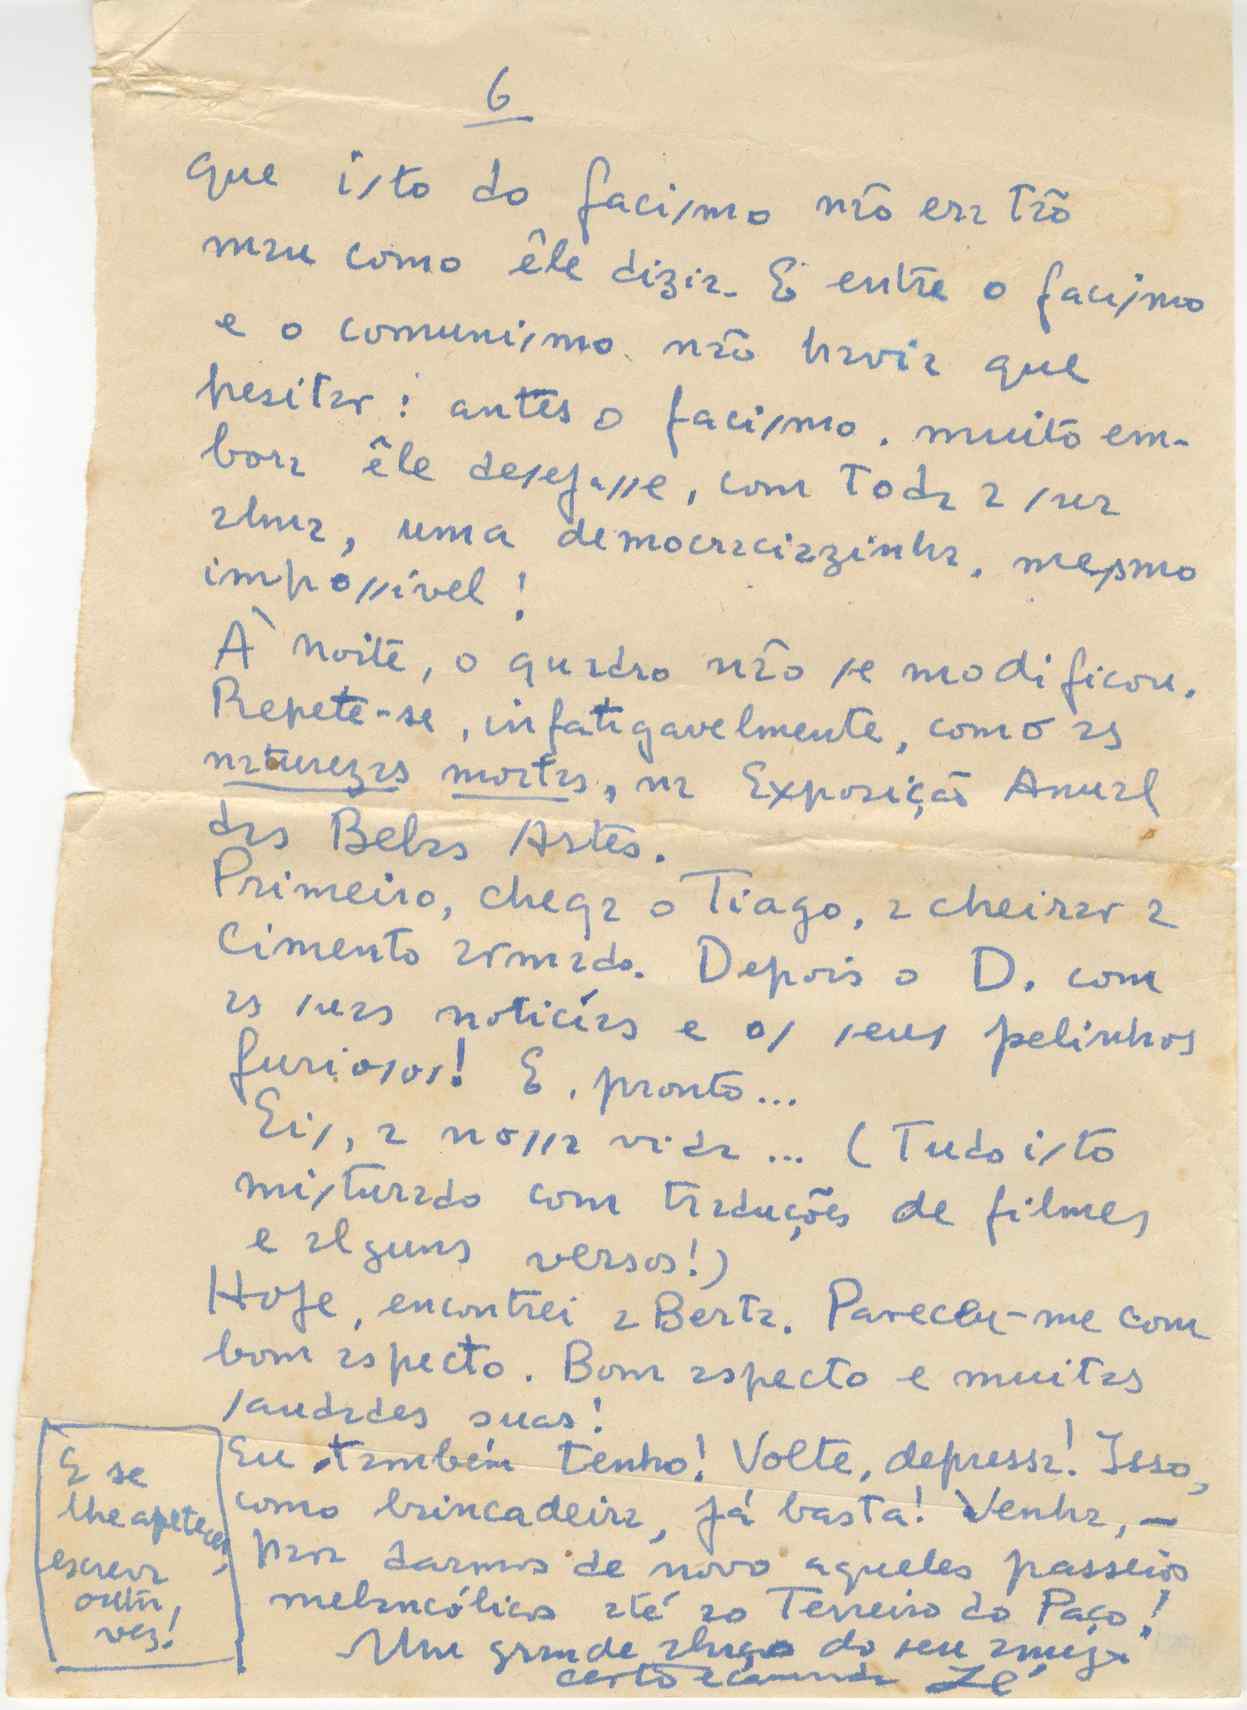 6
que isto do facismo não era tão
mau como êle dizia. E entre o facismo
e o comunismo não havia que
hesitar: antes o facismo, muito em-
bora êle desejasse, com toda a sua
alma, uma democraciazinha, mesmo
impossível!
À noite, o quadro não se modificou.
Repete-se, infatigavelmente, como as
naturezas mortas, na Exposição Anual
das Belas Artes.
Primeiro, chega o Tiago, a cheirar a
cimento armado. Depois o D. com
as suas notícias e os seus pelinhos
furiosos! E, pronto...
Eis, a nossa vida... (Tudo isto
misturado com traduções de filmes
e alguns versos!)
Hoje, encontrei a Berta. Pareceu-me com
bom aspecto. Bom aspecto e muitas
saudades suas!
Eu também tenho! Volte, depressa! Isso,
como brincadeira, já basta! Venha, —
para darmos de novo aqueles passeios
melancólicos até ao Terreiro do Paço!
Um grande abraço do seu amigo
certo e camarada Zé
E se
lhe apetecer,
escreva
outra
vez!